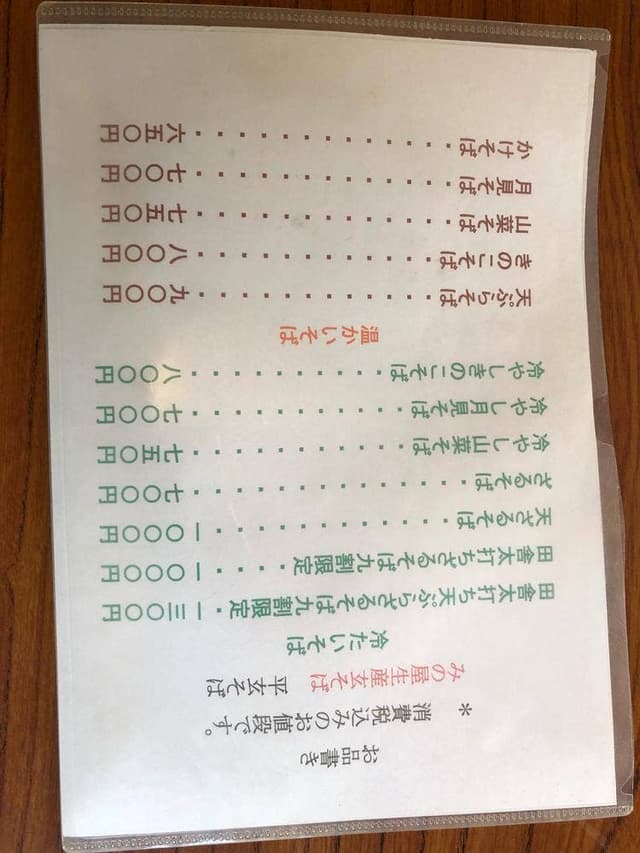 お品書き
＊ 消費税込みのお値段です。
みの屋生産玄そば 平玄そば
冷たいそば
田舎太打ち天ぷらざるそば九割限定・一三〇〇円
田舎太打ちざるそば九割限定・・・・一〇〇〇円
天ざるそば・・・・・・・・・・・・一〇〇〇円
ざるそば・・・・・・・・・・・・・七〇〇円
冷やし山菜そば・・・・・・・・・・七五〇円
冷やし月見そば・・・・・・・・・・七〇〇円
冷やしきのこそば・・・・・・・・・八〇〇円
温かいそば
天ぷらそば・・・・・・・・・・・九〇〇円
きのこそば・・・・・・・・・・・八〇〇円
山菜そば・・・・・・・・・・・・七五〇円
月見そば・・・・・・・・・・・・七〇〇円
かけそば・・・・・・・・・・・・六五〇円